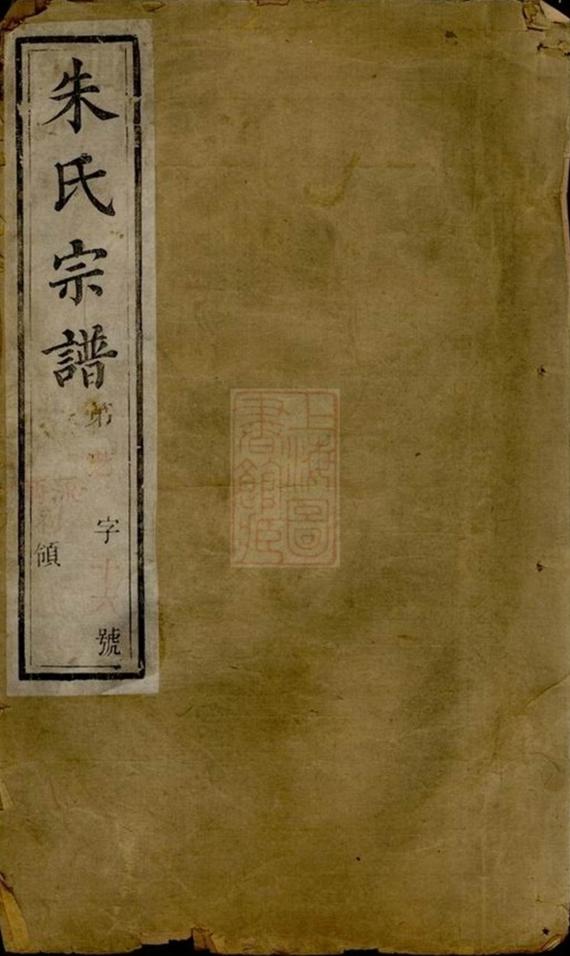 朱氏宗譜
第
字
十六
號
領
上海圖
書館藏